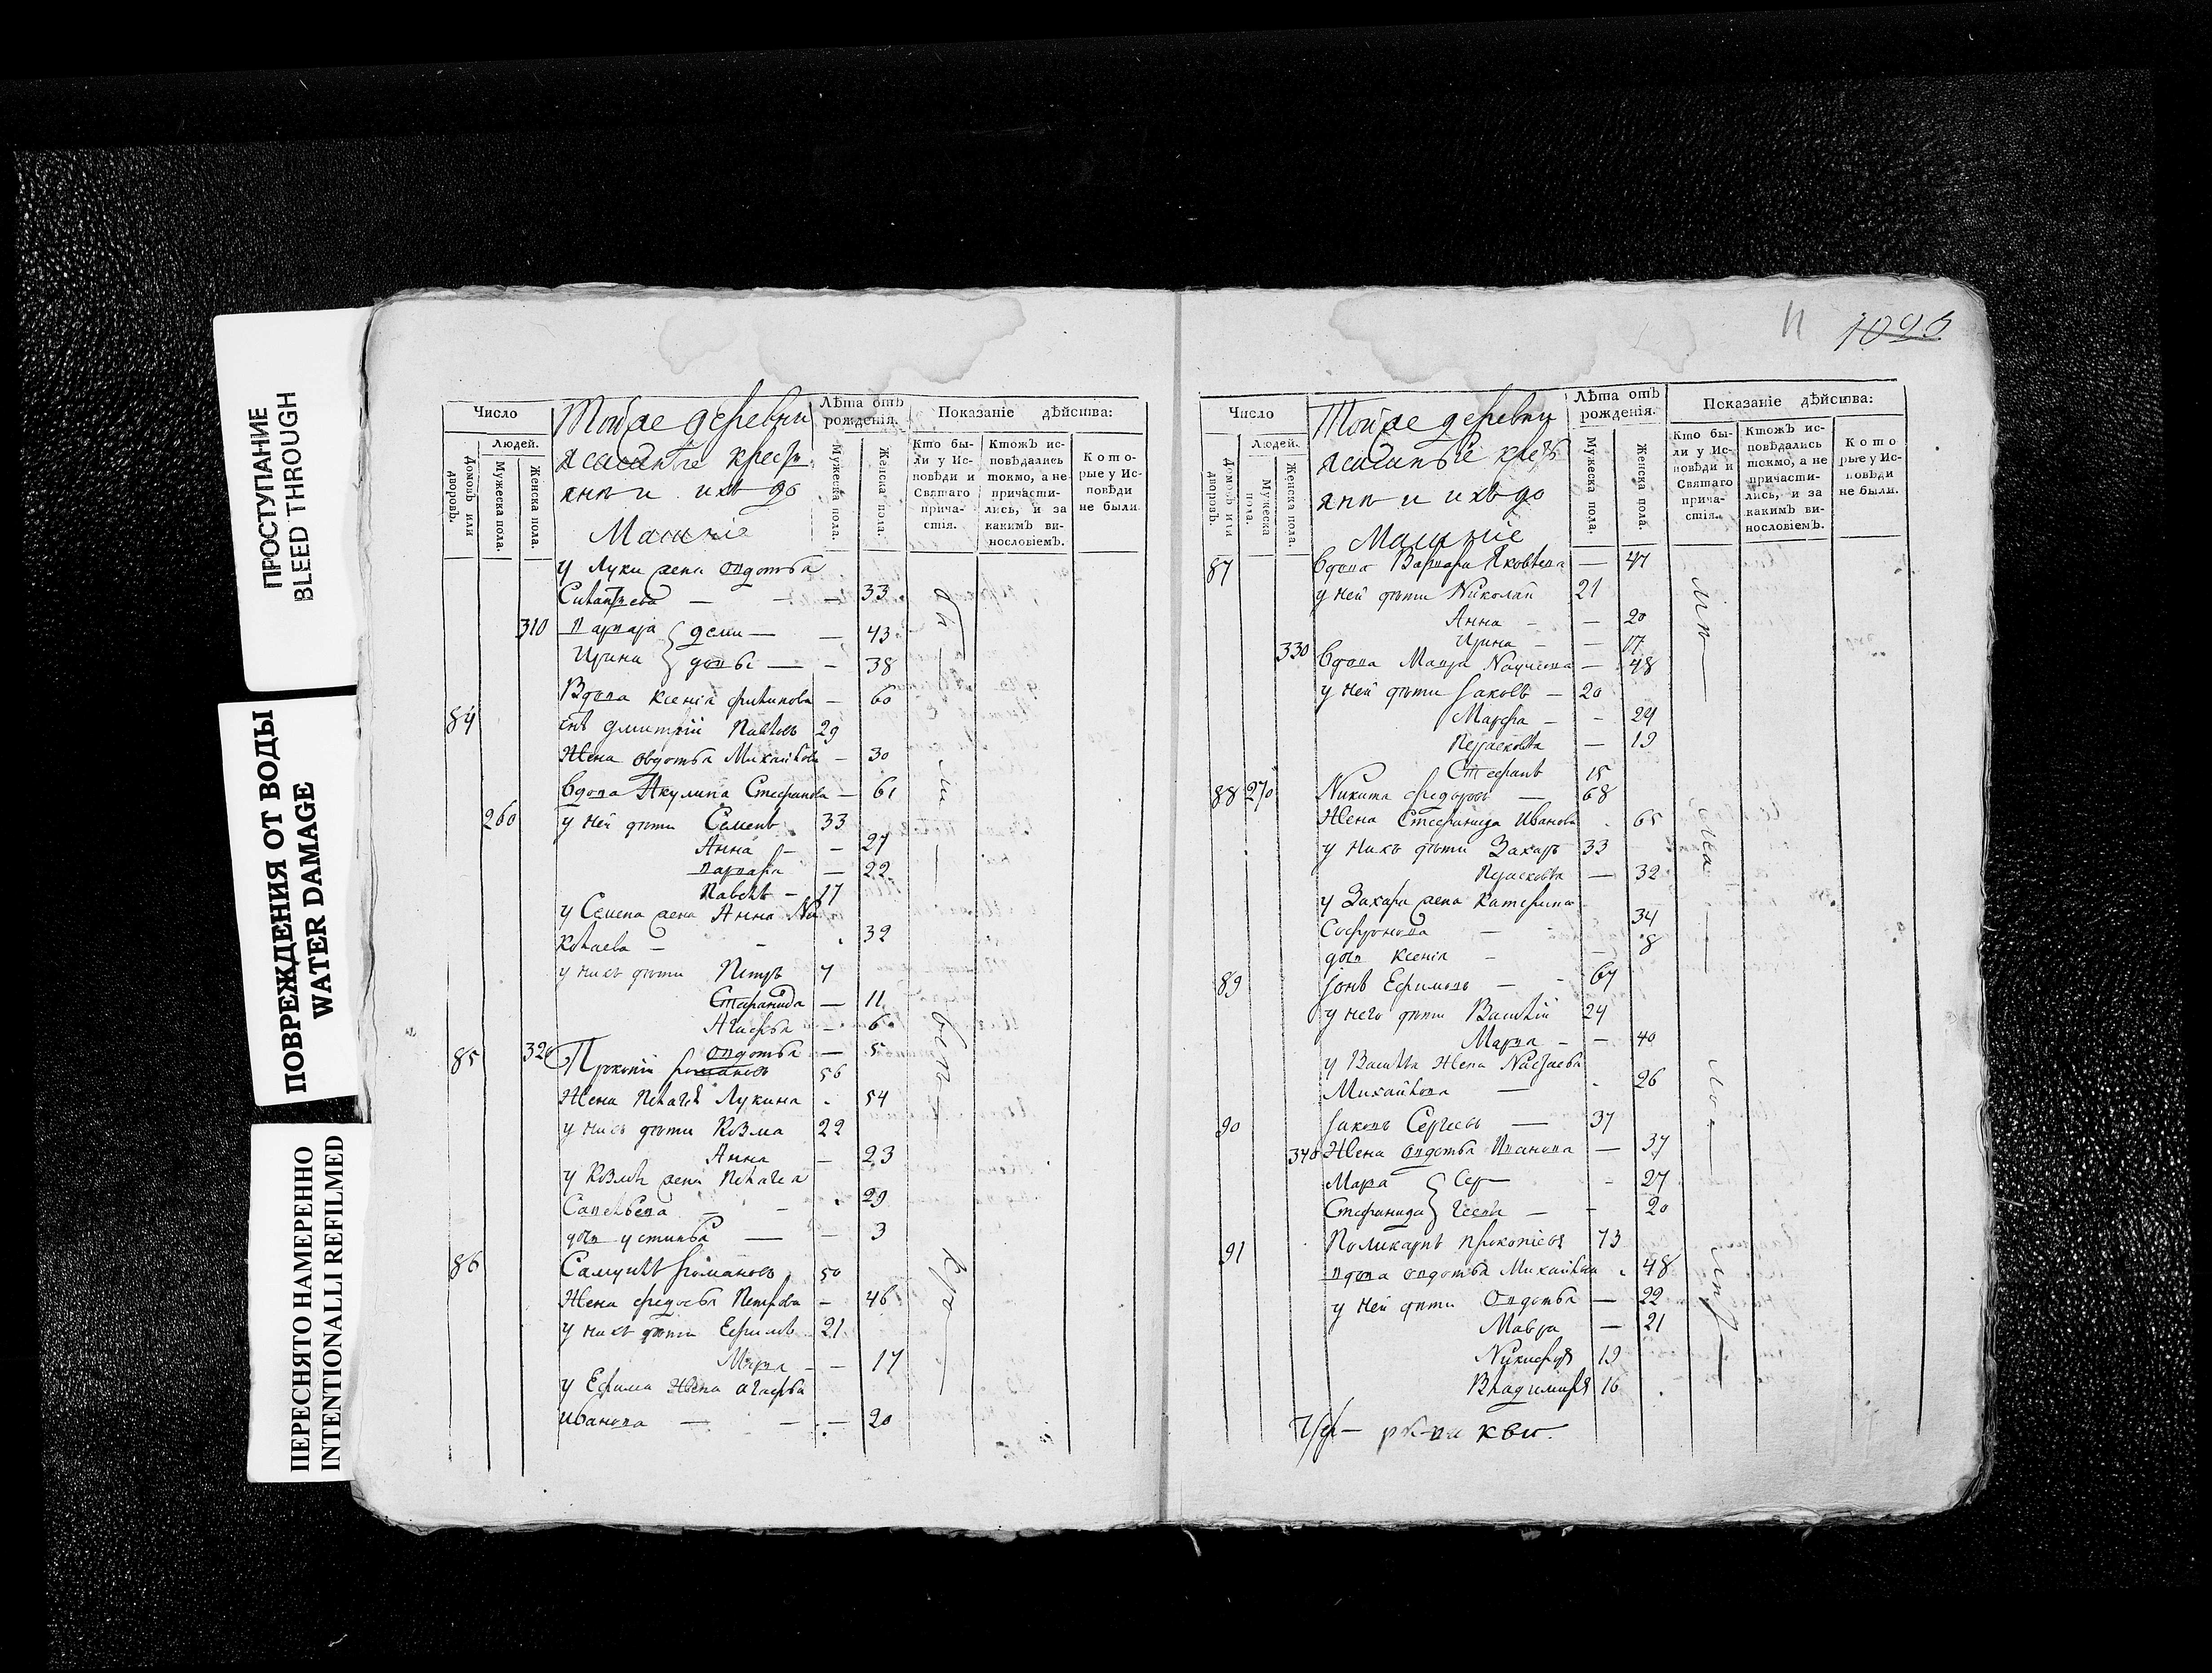 ПРОСТУПАНИЕ
BLEED THROUGH
ПОВРЕЖДЕНИЯ ОТ ВОДЫ
WATER DAMAGE
ПЕРЕСНЯТО НАМЕРЕННО
INTENTIONALLI REFILMED
Число
Людей.
Домовъ или дворовъ.
Мужеска пола.
Женска пола.
Тойже деревни
ясашные крестья
янъ и ихъ до
машніе
Лѣта отъ рожденія.
Мужеска пола.
Женска пола.
Показаніе дѣйства:
Кто были у Исповѣди и Святаго причастія.
Ктожъ исповѣдались токмо, а не причастились, и за какимъ винословіемъ.
Которые у Исповѣди не были.
у Луки жена овдотья
33
310 варвара деми — — 43
Ирина довы — — 38
Вдова Ксенія филипова — 60
84 снъ Дмитрій Павловъ 29
Жена овдотья Михайлова — 30
вдова Акулина Стефанова — 61
260 у ней дѣти Семенъ 33
Анна — — 27
варвара — 22
Павелъ — 17
у Семена жена Анна Ни
колаева — — 32
у нихъ дѣти Петръ 7
Стефанида — 11
Агафья — 6
320 овдотья — 5
85 Прокопій романовъ 56
Жена Пелагея Лукина 54
у нихъ дѣти Козма 22
Анна — 23
у Козмы жена Пелагея
Савельева — — 29
дочь устинья — — 3
86 Самуилъ романовъ 50
Жена федосья Петрова — 46
у нихъ дѣти Ефимъ 21
Марѳа — — 17
у Ефима жена агафья
иванова — — 20
11
1023
Число
Людей.
Домовъ или дворовъ.
Мужеска пола.
Женска пола.
Тойже деревни
ясашные кресть
янъ и ихъ до
машніе
Лѣта отъ рожденія.
Мужеска пола.
Женска пола.
Показаніе дѣйства:
Кто были у Исповѣди и Святаго причастія.
Ктожъ исповѣдались токмо, а не причастились, и за какимъ винословіемъ.
Которые у Исповѣди не были.
87 вдова Варвара Яковлева — 47
у ней дѣти Николай 21
Анна — — 20
Ирина — — 17
330 вдова Мавра — 48
у ней дѣти Іаковъ — 20
Марфа — — 24
Прасковья — 19
Стефанъ 15
88 270 Никита федоровъ — 68
Жена Стефанида Иванова 65
у нихъ дѣти Захаръ 33
Прасковья — 32
у Захара жена Катерина
Софронова — 34
дочь Ксенія — — 8
89 Іонъ Ефимовъ — 67
у него дѣти Василій 24
Марѳа — — 40
у Василья Жена Настасья
Михайлова — 26
90 Іаковъ Сергеевъ — 37
340 Жена овдотья Иванова — 37
Мавра Сер — 27
Стефанида геевы — — 20
91 Поликарпъ прокопіевъ 73
вдова овдотья Михайлова 48
у ней дѣти Овдотья — 22
Мавра — 21
Никифоръ 19
Владимиръ 16